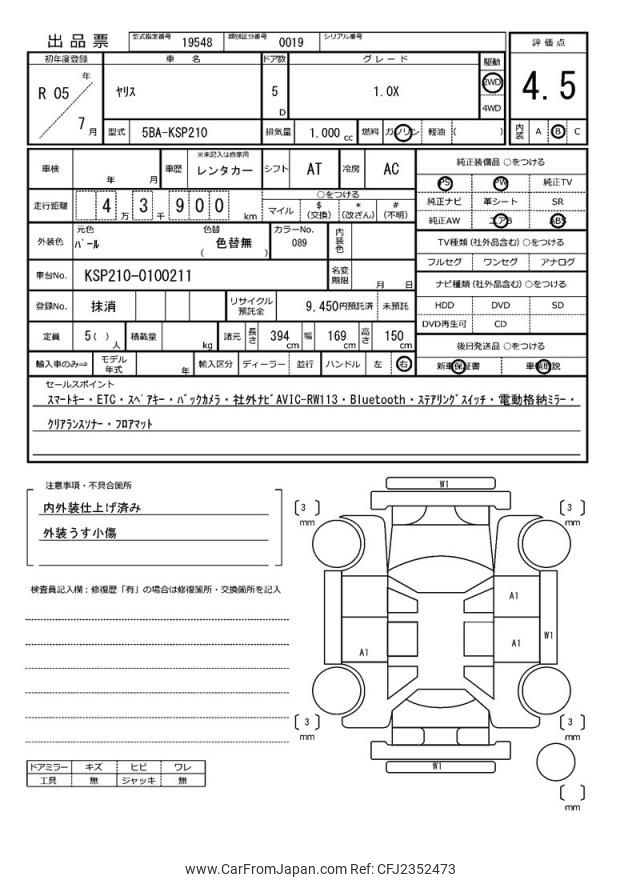 出品票 型式指定番号 19548 類別区分番号 0019 シリアル番号
評価点
初年度登録 車名 ドア数 グレード 駆動
R 05 年 7 月 ヤリス 5 D 1.0X 2WD 4WD
4.5
型式 5BA-KSP210 排気量 1.000 cc 燃料 ガソリン 軽油 ( )
内装 A B C
車検 年 月 車歴 ※未記入は自家用 レンタカー シフト AT 冷房 AC
走行距離 4 万 3 千 9 0 0 km ○をつける マイル $ (交換) * (改ざん) # (不明)
外装色 元色 パール 色替 色替無 ( ) カラーNo. 089 内装色
車台No. KSP210-0100211 名変期限 月 日
登録No. 抹消 リサイクル預託金 9,450円預託済 未預託
定員 5( ) 人 積載量 kg 諸元 長さ 394 cm 幅 169 cm 高さ 150 cm
輸入車のみ⇒ モデル年式 年 輸入区分 ディーラー 並行 ハンドル 左 右
純正装備品 ○をつける
PS PW 純正TV
純正ナビ 革シート SR
純正AW エアB ABS
TV種類 (社外品含む) ○をつける
フルセグ ワンセグ アナログ
ナビ種類 (社外品含む) ○をつける
HDD DVD SD
DVD再生可 CD
後日発送品 ○をつける
新車保証書 車輌取説
セールスポイント
スマートキー・ETC・スペアキー・バックカメラ・社外ナビAVIC-RW113・Bluetooth・ステアリングスイッチ・電動格納ミラー・
クリアランスソナー・フロアマット
注意事項・不具合箇所
内外装仕上げ済み
外装うす小傷
検査員記入欄：修復歴「有」の場合は修復箇所・交換箇所を記入
W1
[ 3 ] mm [ 3 ] mm
A1
A1 W1
A1
[ 3 ] mm [ 3 ] mm
W1
[ ] mm
ドアミラー キズ ヒビ ワレ
工具 無 ジャッキ 無
www.CarFromJapan.com Ref: CFJ2352473